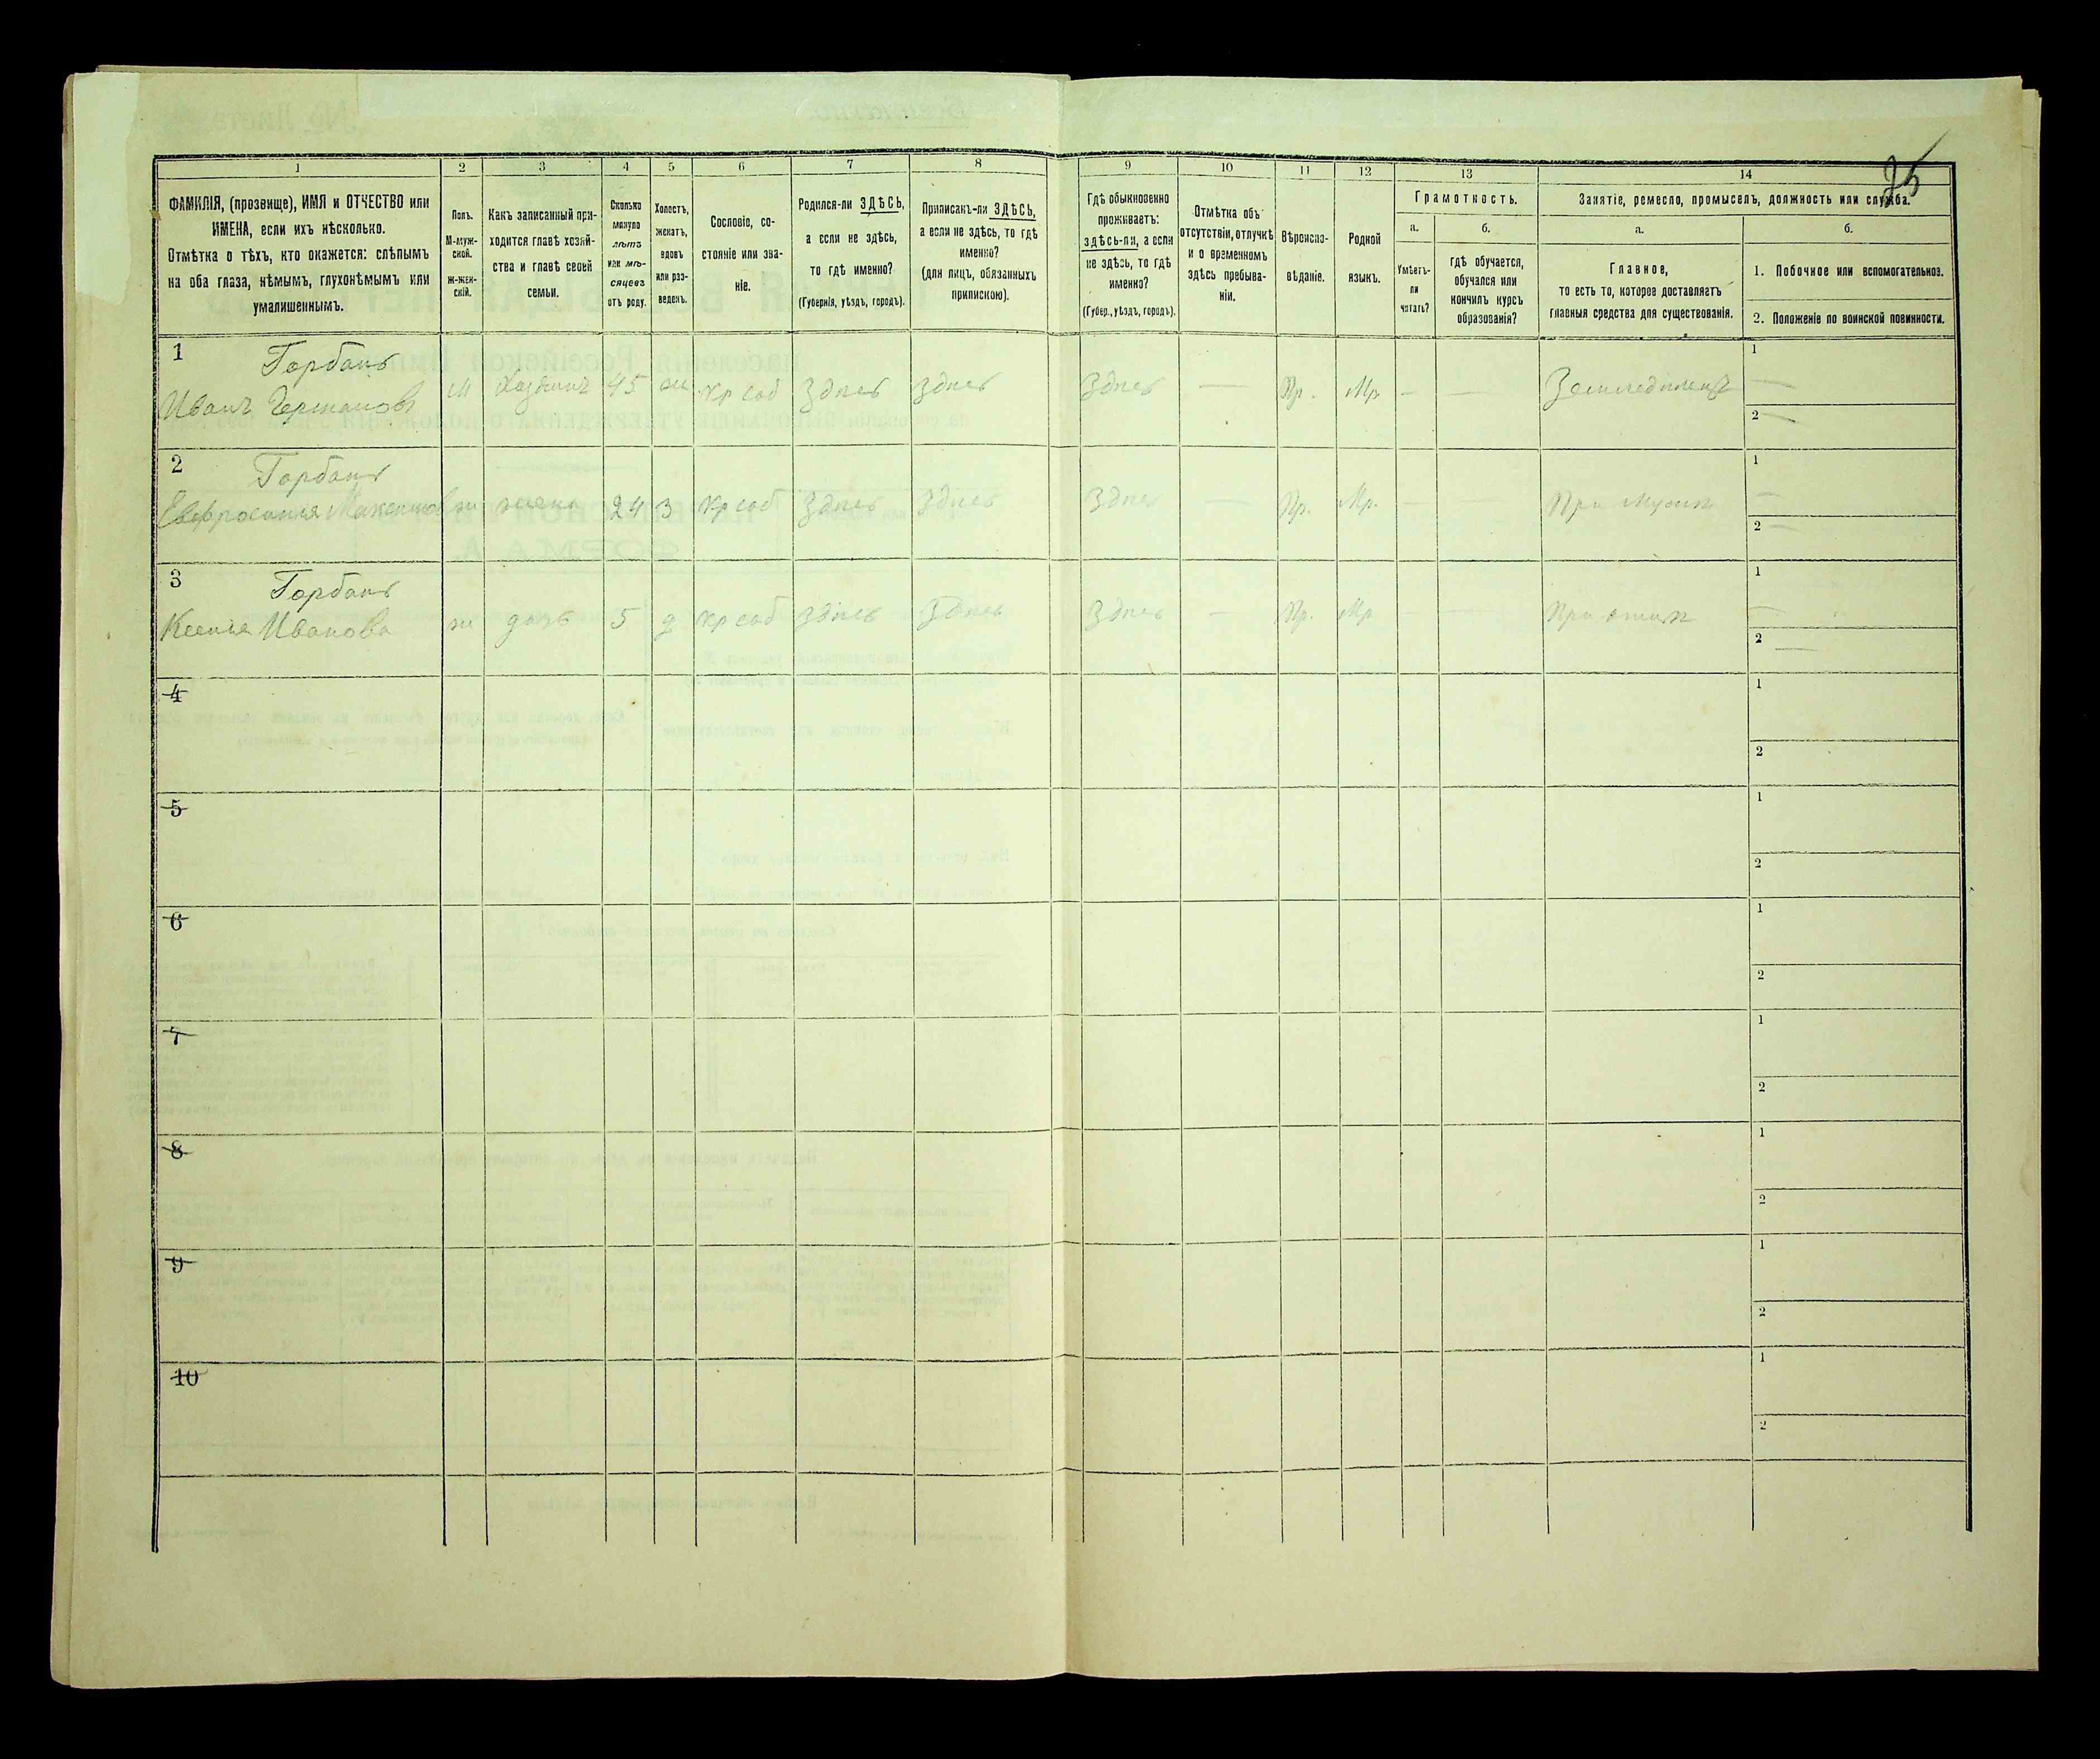 75
1 2 3 4 5 6 7 8 9 10 11 12 13 14
ФАМИЛІЯ, (прозвище), ИМЯ и ОТЧЕСТВО или
ИМЕНА, если ихъ нѣсколько.
Отмѣтка о тѣхъ, кто окажется: слѣпымъ
на оба глаза, нѣмымъ, глухонѣмымъ или
умалишеннымъ.
Полъ.
М-муж-
ской.
Ж-жен-
скій.
Какъ записанный при-
ходится главѣ хозяй-
ства и главѣ своей
семьи.
Сколько
минуло
лѣтъ
или мѣ-
сяцевъ
отъ роду.
Холостъ,
женатъ,
вдовъ
или раз-
веденъ.
Сословіе, со-
стояніе или зва-
ніе.
Родился-ли ЗДѢСЬ,
а если не здѣсь,
то гдѣ именно?
(Губернія, уѣздъ, городъ).
Приписанъ-ли ЗДѢСЬ,
а если не здѣсь, то гдѣ
именно?
(для лицъ, обязанныхъ
припискою).
Гдѣ обыкновенно
проживаетъ:
здѣсь-ли, а если
не здѣсь, то гдѣ
именно?
(Губер., уѣздъ, городъ).
Отмѣтка объ
отсутствіи, отлучкѣ
и о временномъ
здѣсь пребыва-
ніи.
Вѣроиспо-
вѣданіе.
Родной
языкъ.
Грамотность.
а.
Умѣетъ-
ли
читать?
б.
гдѣ обучается,
обучался или
кончилъ курсъ
образованія?
Занятіе, ремесло, промыселъ, должность или служба.
а.
Главное,
то есть то, которое доставляетъ
главныя средства для существованія.
б.
1. Побочное или вспомогательное.
2. Положеніе по воинской повинности.
1 Горбань 1
Иванъ Германовъ м Хозяинъ 45 ж Кр соб Здѣсь Здѣсь Здѣсь — Пр. Мр — — Земледѣлецъ —
2 —
2 Горбань 1
Евфросинія Максимов ж жена 24 З Кр соб Здѣсь Здѣсь Здѣсь — Пр. Мр. — — При мужѣ —
2 —
3 Горбань 1
Ксенія Иванова ж дочь 5 д Кр соб Здѣсь Здѣсь Здѣсь — Пр. Мр — — При отцѣ —
2 —
4 1
2
5 1
2
6 1
2
7 1
2
8 1
2
9 1
2
10 1
2